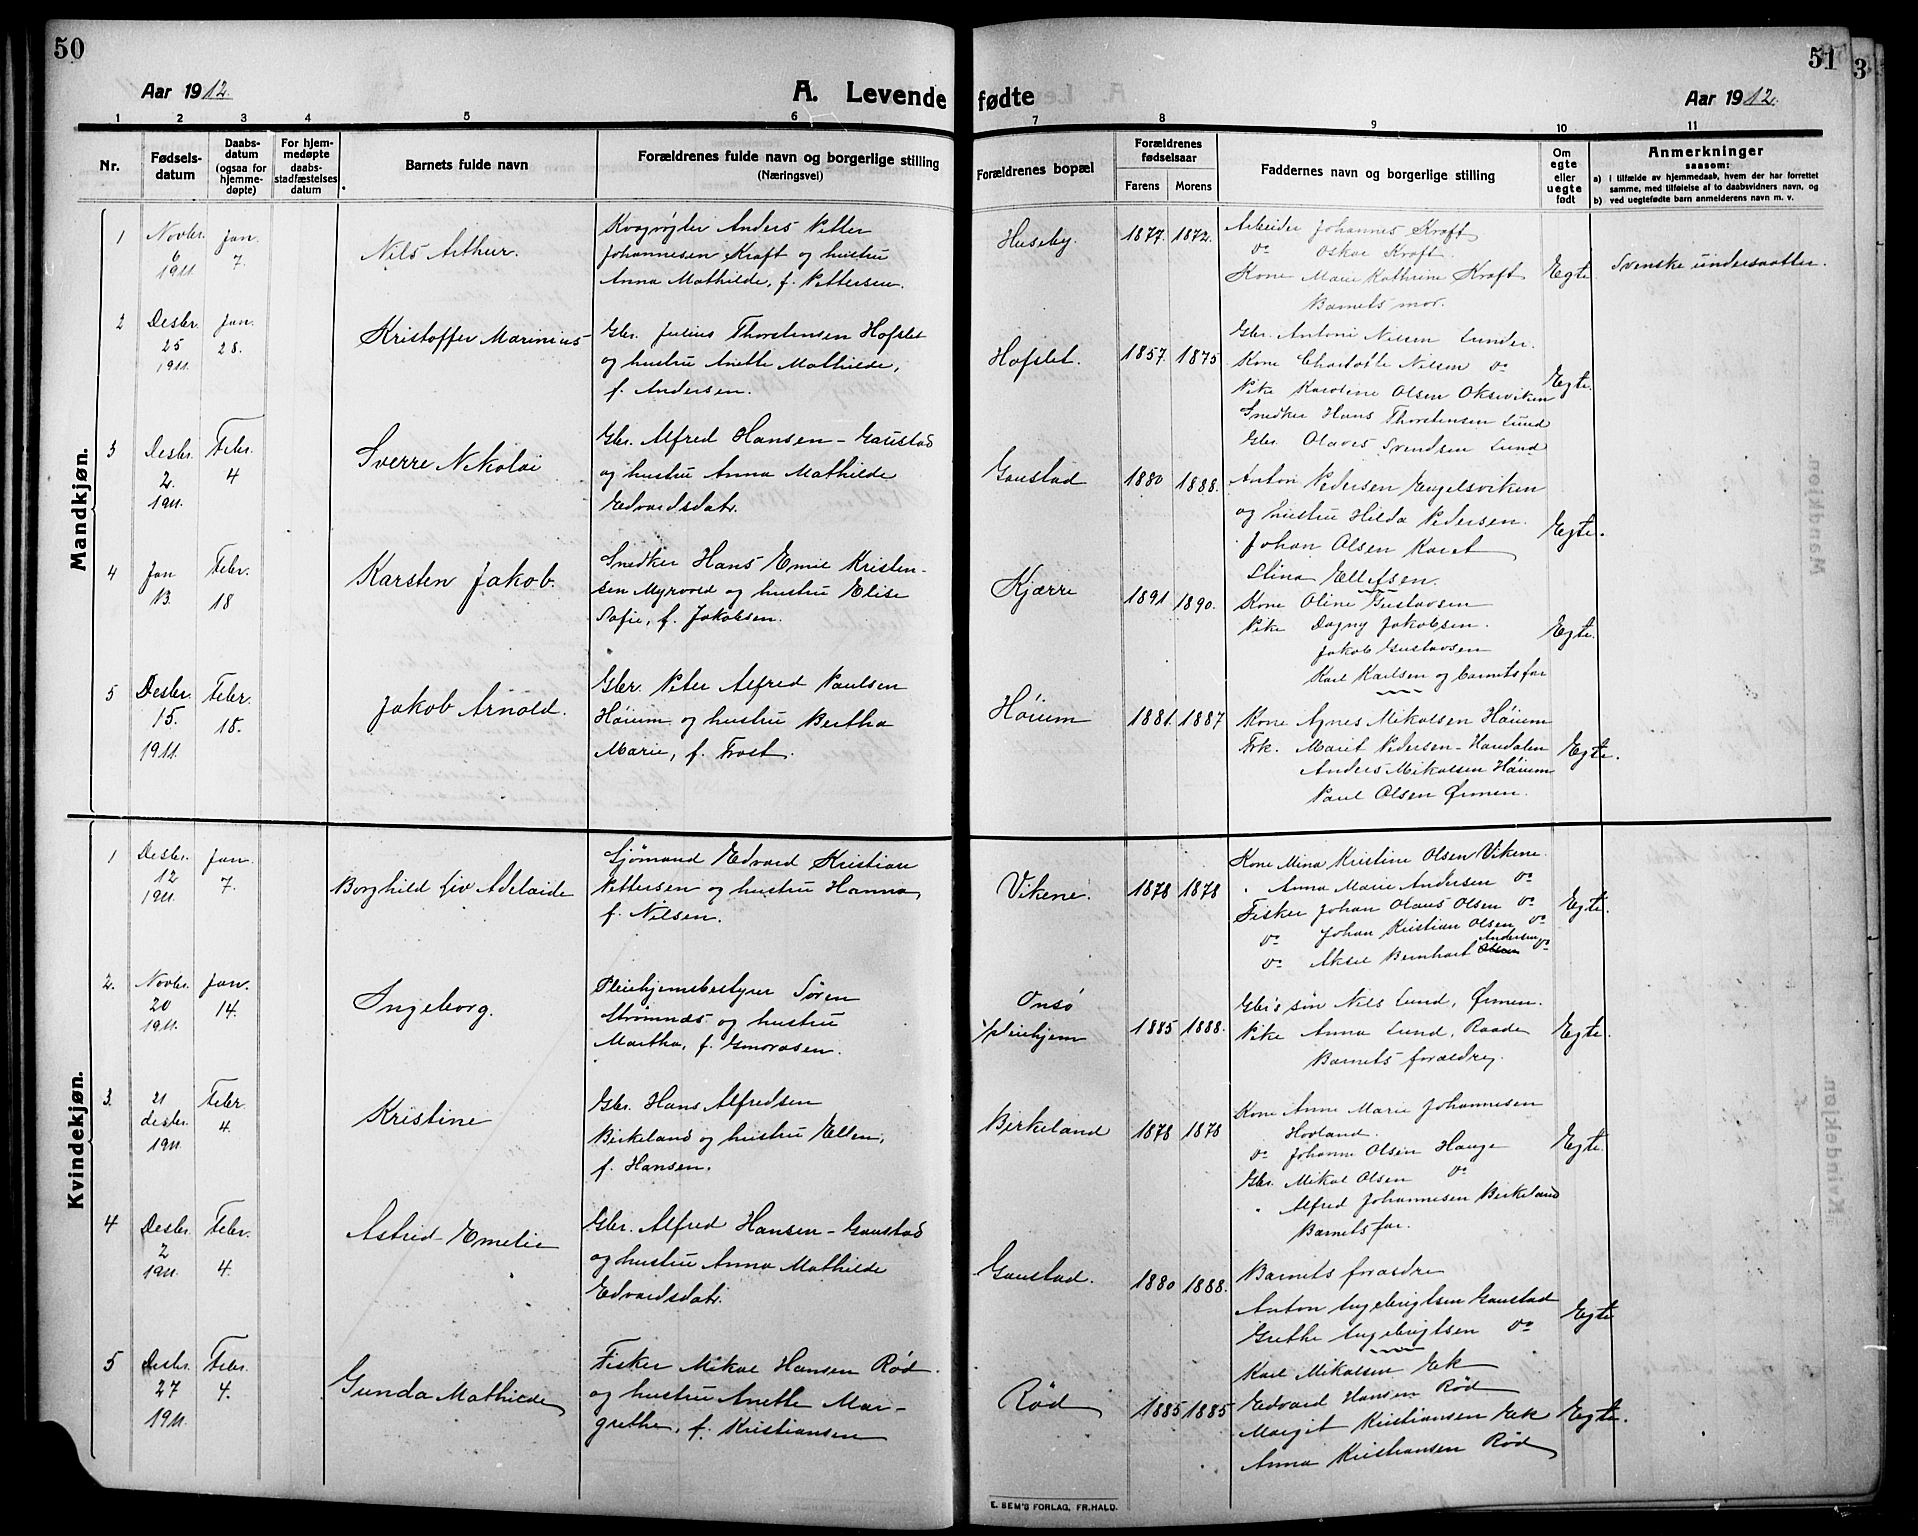 50
51
3
Aar 1912.
A. Levende fødte
Aar 1912.
1 2 3 4 5 6 7 8 9 10 11
Nr.
Fødsels-
datum
Daabs-
datum
(ogsaa for
hjemme-
døpte)
For hjem-
medøpte
daabs-
stadfæstelses
datum
Barnets fulde navn
Forældrenes fulde navn og borgerlige stilling
(Næringsvei)
Forældrenes bopæl
Forældrenes
fødselsaar
Farens
Morens
Faddernes navn og borgerlige stilling
Om
egte
eller
uegte
født
Anmerkninger
saasom:
a) i tilfælde av hjemmedaab, hvem der har forrettet
samme, med tilføielse af to daabsvidners navn, og
b) ved uegtefødte barn anmelderens navn m. v.
Mandkjøn.
1
Novbr.
6
1911
Jan.
7.
Nils Arthur.
Kvægrøgter Anders Petter
Johannesen Kraft og hustru
Anna Mathilde, f. Pettersen.
Huseby.
1877. 1872.
Arbeider Johannes Kraft
do Oskar Kraft.
Kone Marie Kathrine Kraft
Barnets mor.
Egte.
Svenske undersaatter.
2
Desbr.
25
1911.
Jan.
28.
Kristoffer Marinius
Gbr. Julius Thorstensen Hofslet
og hustru Anette Mathilde,
f. Andersen.
Hofslet.
1857. 1875
Gbr. Antoni Nilsen Lunder.
Kone Charlotte Nilsen do
Pike Karoline Olsen Okseviken
Snedker Hans Thorstensen Lund
Gbr. Olaves Svendsen Lund
Egte.
3
Desbr.
2.
1911.
Febr.
4
Sverre Nikolai
Gbr. Alfred Hansen-Gaustad
og hustru Anna Mathilde
Edvardsdatr.
Gaustad
1880 1888.
Anton Pedersen Engelsviken
og hustru Hilda Pedersen.
Johan Olsen
Stina Ellefsen.
Egte.
4
Jan
13.
Febr.
18
Karsten Jakob.
Snedker Hans Emil Kristen-
sen Myrvold og hustru Elise
Sofie, f. Jakobsen.
Kjærre
1891 1890.
Kone Oline Gustavsen
Pike Dagny Jakobsen.
Jakob Gustavsen
Karl Karlsen og barnets far
Egte.
5
Desbr.
15.
1911.
Febr.
18.
Jakob Arnold.
Gbr. Peter Alfred Paulsen
Høium og hustru Bertha
Marie, f. Frost.
Høium
1881. 1887
Kone Agnes Mikalsen Høium
Frk. Marit Pedersen-Haudalen
Anders Mikalsen Høium
Paul Olsen Ørmen.
Egte.
Kvindekjøn.
1
Desbr.
12
1911.
Jan.
7.
Borghild Liv Adelaide
Sjømand Edvard Kristian
Pettersen og hustru Hanna,
f. Nilsen.
Vikene.
1878 1878
Kone Mina Kristine Olsen Vikene.
" Anna Marie Andersen do
Fisker Johan Olaus Olsen do
do Johan Kristian Olsen do
Andersen
do Aksel Bernhart Olsen do
Egte.
2.
Novbr.
20
1911.
Jan.
14.
Ingeborg.
Pleiehjemsbestyrer Søren
Strømnæs og hustru
Martha, f. Gmorasen.
Onsø
pleiehjem
1885 1888.
Gbr's søn Nils Lund, Ørmen.
Pike Anna Lund, Raade
Barnets forældre.
Egte.
3.
21
desbr.
1911.
Febr.
4.
Kristine
Gbr. Hans Alfredsen
Birkeland og hustru Ellen,
f. Hansen.
Birkeland
1878 1878
Kone Anne Marie Johannesen
Hovland.
do Johanne Olsen Hauge
Gbr. Mikal Olsen do
" Alfred Johannesen Birkeland
Barnets far.
Egte.
4
Desbr.
2
1911.
Febr.
4.
Astrid Emelie
Gbr. Alfred Hansen-Gaustad
og hustru Anna Mathilde
Edvardsdatr.
Gaustad.
1880 1888.
Barnets forældre
Anton Ingebrigtsen Gaustad
Grethe Ingebrigtsen do
Egte
5
Desbr.
27
1911.
Febr.
4.
Gunda Mathilde
Fisker Mikal Hansen Rød
og hustru Anette Mar-
grethe, f. Kristiansen
Rød
1885 1885
Karl Mikalsen Ek
Edvard Hansen Rød
Margit Kristiansen Ek
Anna Kristiansen Rød
Egte.
E. SEM'S FORLAG, FR.HALD.